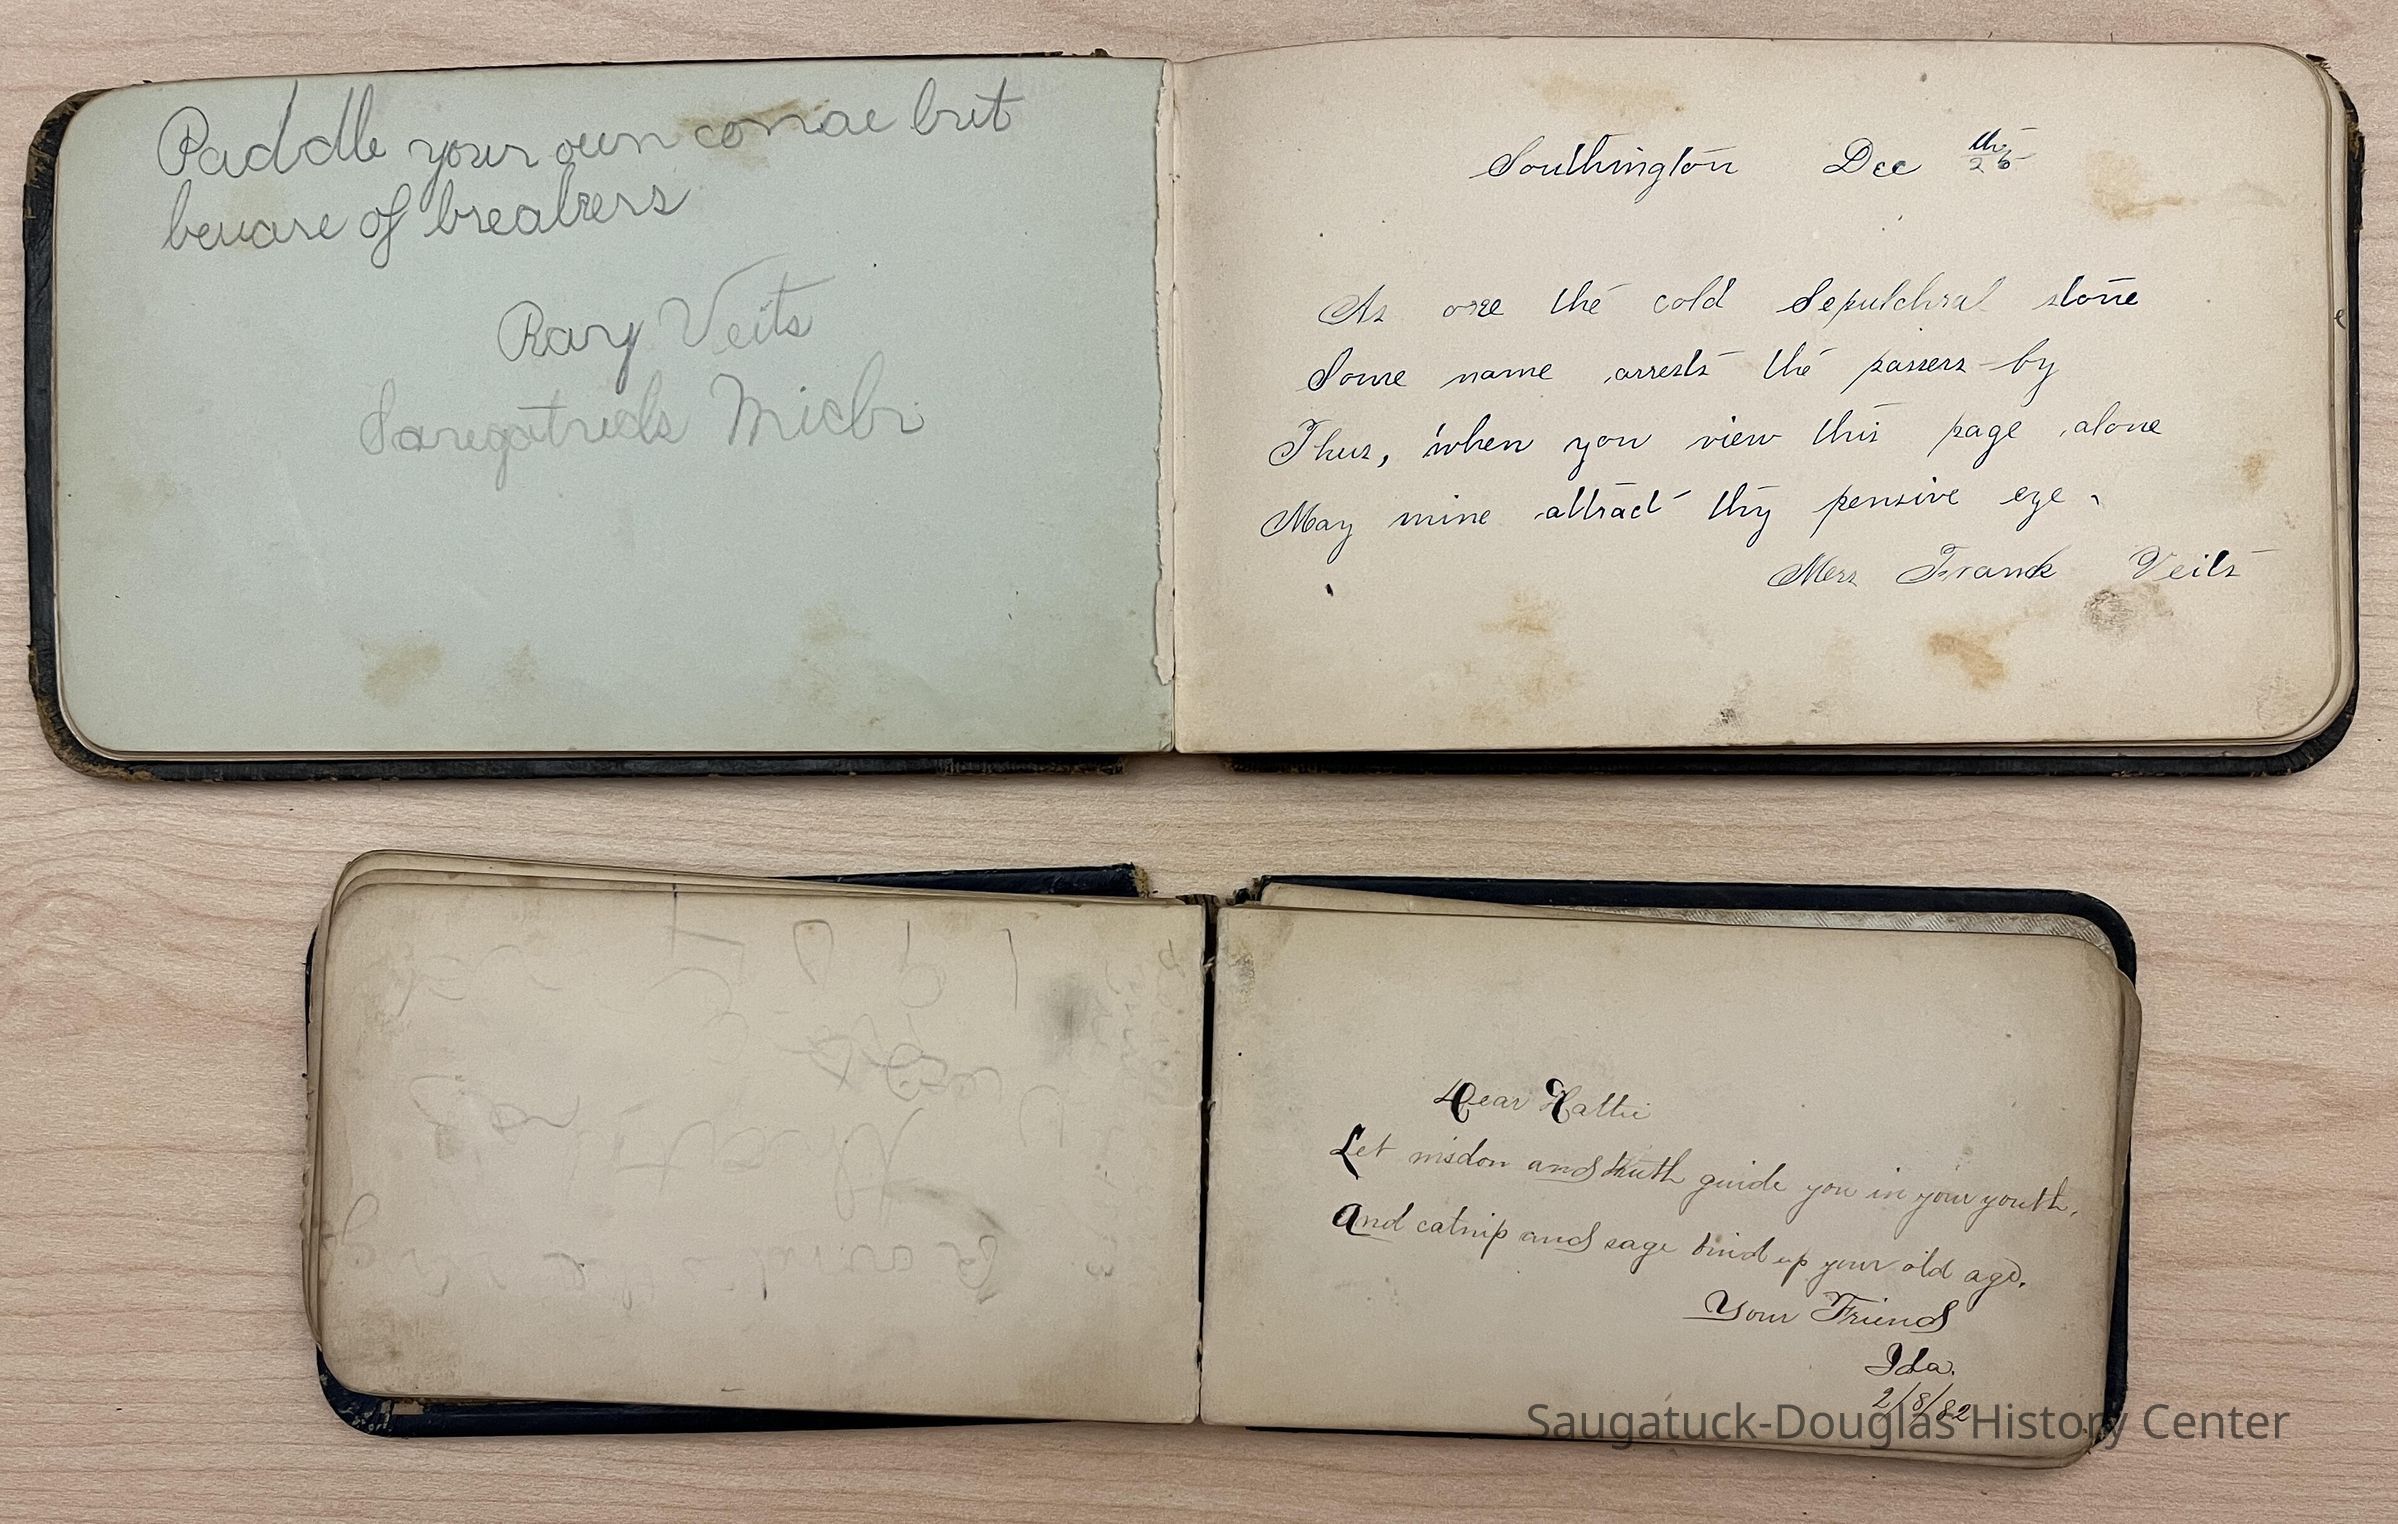 Paddle your own conae but
beware of breakers
Ray Veits
Saregatuck Mich
Southington Dec 25th
As one the cold Sepulchral stone
Some name arrests the passers-by
Thus, when you view this page alone
May mine attract thy pensive eye.
Mrs Frank Veits
1 9 0
Dear Hattie
Let wisdon and truth guide you in your youth,
And catnip and sage bind up your old age.
Your Friend
Ida.
2/8/82
Saugatuck-Douglas History Center